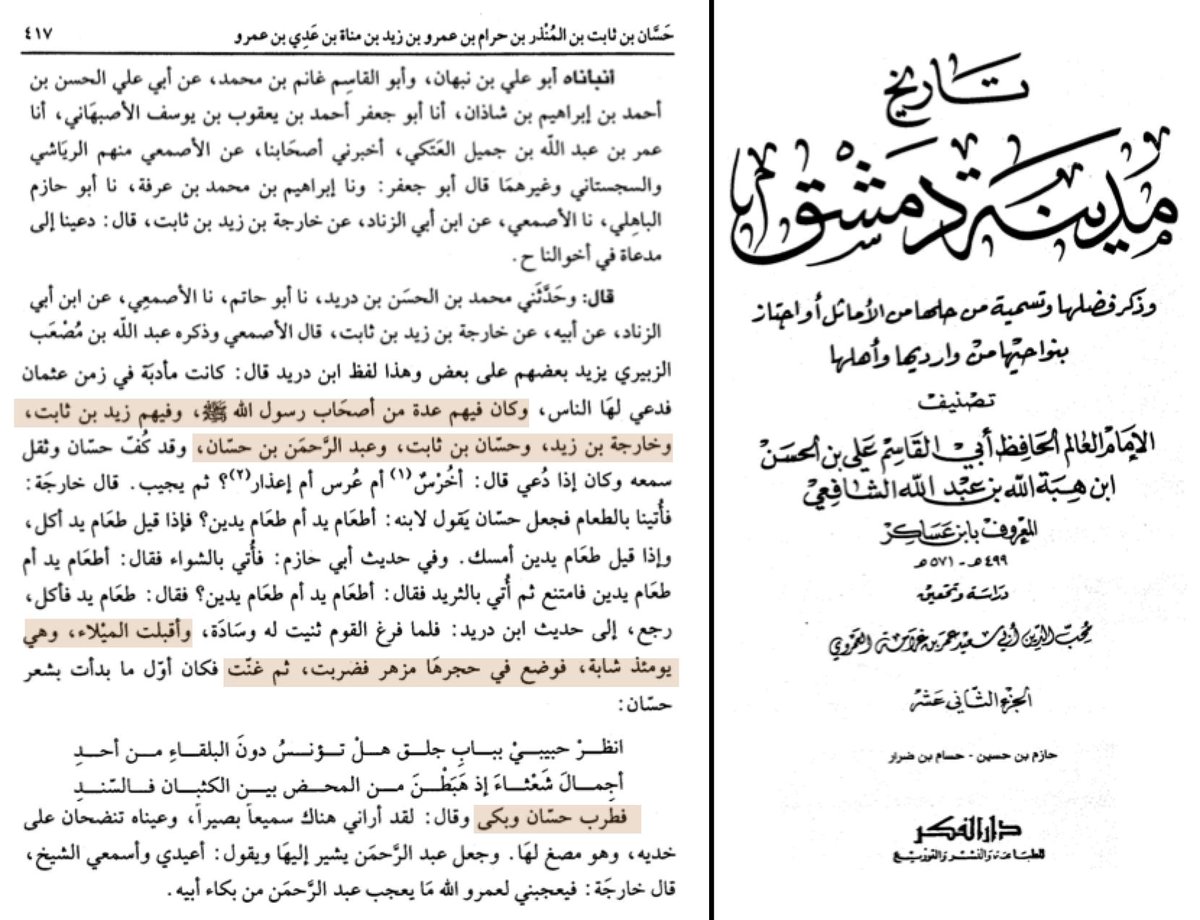 حَسَّان بن ثابت بن المُنْذر بن حرام بن عمرو بن زيد بن مناة بن عَدِي بن عمرو ٤١٧
انبانَاه أبو علي بن نبهان، وأبو القاسِم غانم بن محمد، عن أبي علي الحسن بن
أحمد بن إبراهيم بن شاذان، أنا أبو جعفر أحمد بن يعقوب بن يوسف الأصبهَاني، أنا
عمر بن عبد اللّه بن جميل العَتَكي، أخبرني أصحَابنا، عن الأصمعي منهم الريَاشي
والسجستاني وغيرهمَا قال أبو جعفر: ونا إبراهيم بن محمد بن عرفة، نا أبو حازم
الباهِلي، نا الأصمعي، عن ابن أبي الزناد، عن خارجة بن زيد بن ثابت، قال: دعينا إلى
مدعاة في أخوالنا ح.
قال: وحَدَّثَني محمد بن الحسَن بن دريد، نا أبو حاتم، نا الأصمعِي، عن ابن أبي
الزناد، عن أبيه، عن خارجة بن زيد بن ثابت، قال الأصمعي وذكره عبد اللّه بن مُصْعَب
الزبيري يزيد بعضهم على بعض وهذا لفظ ابن دريد قال: كانت مأدبَة في زمن عثمان
فدعي لهَا الناس، وكان فيهم عدة من أصحَاب رسول الله ﷺ، وفيهم زيد بن ثابت،
وخارجة بن زيد، وحسّان بن ثابت، وعبد الرَّحمَن بن حسّان، وقد كُفّ حسّان وثقل
سمعه وكان إذا دُعي قال: أخُرْسٌ(١) أم عُرس أم إعذار(٢)؟ ثم يجيب. قال خارجَة:
فأُتينا بالطعام فجعل حسّان يَقول لابنه: أطعَام يد أم طعَام يدين؟ فإذا قيل طعَام يد أكل،
وإذا قيل طعَام يدين أمسك. وفي حديث أبي حازم: فأُتي بالشواء فقال: أطعَام يد أم
طعَام يدين فامتنع ثم أُتي بالثريد فقال: أطعَام يد أم طعَام يدين؟ فقال: طعَام يد فأكل،
رجع، إلى حديث ابن دريد: فلما فرغ القوم ثنيت له وسَادَة، وأقبلت الميْلاء، وهي
يومئذ شابة، فوضع في حجرهَا مزهر فضربت، ثم غنّت فكان أوّل ما بدأت بشعر
حسّان:
انظـرْ حبيبـيْ ببـابِ جلـق هـلْ تـؤنـسُ دونَ البلقـاءِ مـن أحـدِ
أجمـالَ شَعْثـاءَ إذ هَبَطْـنَ مـن المحـض بيـن الكثبـان فـالسّنـدِ
فطرب حسّان وبكى وقال: لقد أراني هناك سميعاً بصيراً، وعيناه تنضحَان على
خديه، وهو مصغ لهَا. وجعل عبد الرَّحمَن يشير إليهَا ويقول: أعيدي وأسمعي الشيخ،
قال خارجَة: فيعجبني لعمرو الله مَا يعجب عبد الرَّحمَن من بكاء أبيه.
تاريخ
مدينة دمشق
وذكر فضلها وتسمية من حلها من الأماثل أو اجتاز
بنواحيها من وارديها وأهلها
تصنيف
الإمام العالم الحافظ أبي القاسم علي بن الحسن
ابن هبة الله بن عبد الله الشافعي
المعروف بابن عساكر
٤٩٩ هـ - ٥٧١ هـ
دراسة وتحقيق
محب الدين أبي سعيد عمر بن غرامة العمروي
الجزء الثاني عشر
حازم بن حسين - حسام بن ضرار
دار الفكر
للطباعة والنشر والتوزيع